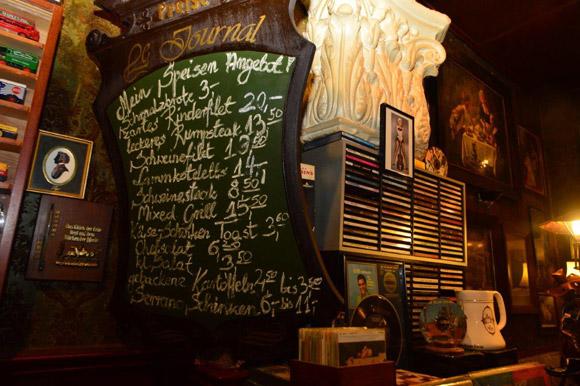 Le Journal
Mein Speisen Angebot!
Schmalzbrote 3,-
Zartes Rinderfilet 20,-
leckeres Rumpsteak 13,50
Schweinefilet 13,50
Lammkoteletts 14,-
Schweinesteak 8,50
Mixed Grill 15,50
Käse-Schinken Toast 3,60
6,50
3,50
gebackene Kartoffeln 2,50 bis 3,50
Serrano Schinken 6,- bis 11,-